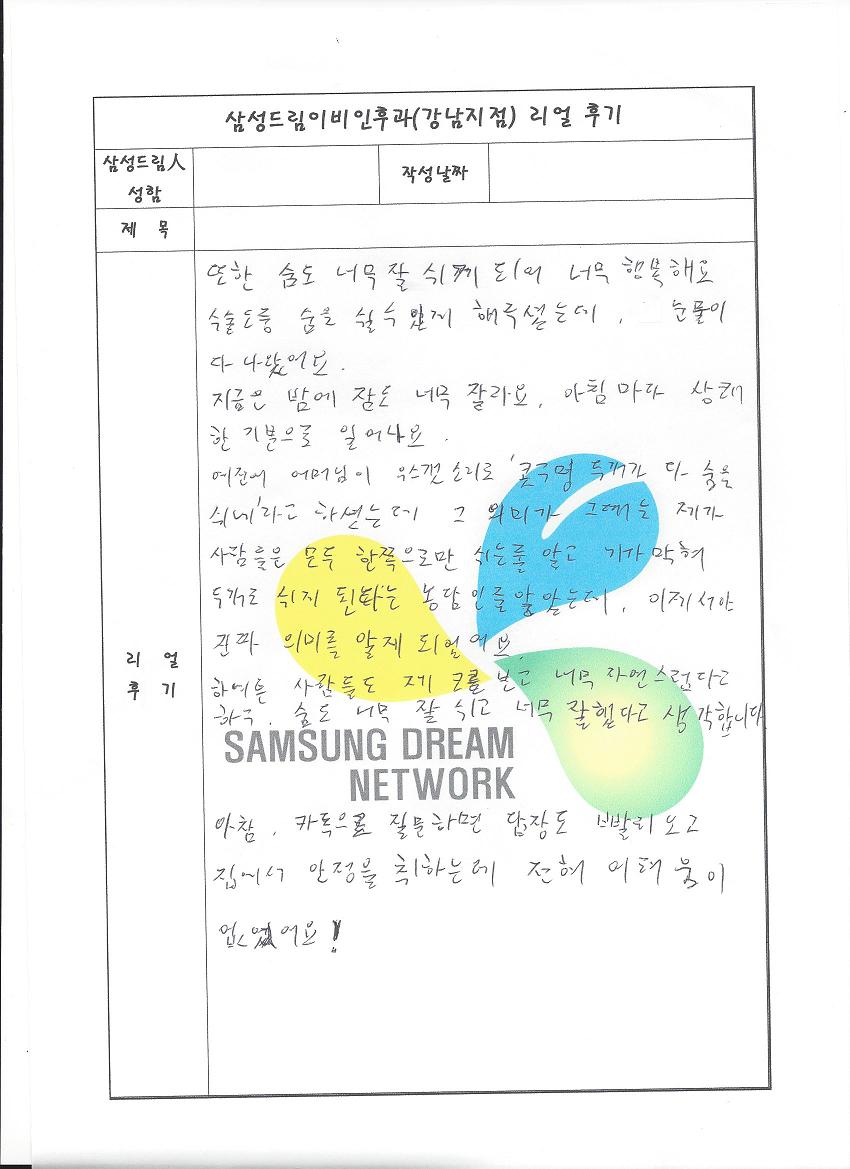 삼성드림이비인후과(강남지점) 리얼 후기
삼성드림人
성함
작성날짜
제 목
리 얼
후 기
또한 숨도 너무 잘 쉬게 되어 너무 행복해요
수술도중 숨을 쉴수 있게 해주셨는데, 눈물이
다 나왔어요.
지금은 밤에 잠도 너무 잘자요, 아침마다 상쾌
한 기분으로 일어나요.
예전에 어머님이 우스갯소리로 '콧구멍 두개가 다 숨을
쉬네'라고 하셨는데 그 의미가 그때는 제가
사람들은 모두 한쪽으로만 쉬는줄 알고 기가막혀
두개로 쉬지 된다는 농담인줄 알았는데, 이제서야
진짜 의미를 알게 되었어요.
하여튼 사람들도 제 코를 보고 너무 자연스럽다고
하구, 숨도 너무 잘 쉬고 너무 잘했다고 생각합니다
SAMSUNG DREAM
NETWORK
아참, 카톡으로 질문하면 답장도 빨리오고
집에서 안정을 취하는데 전혀 어려움이
없었어요!